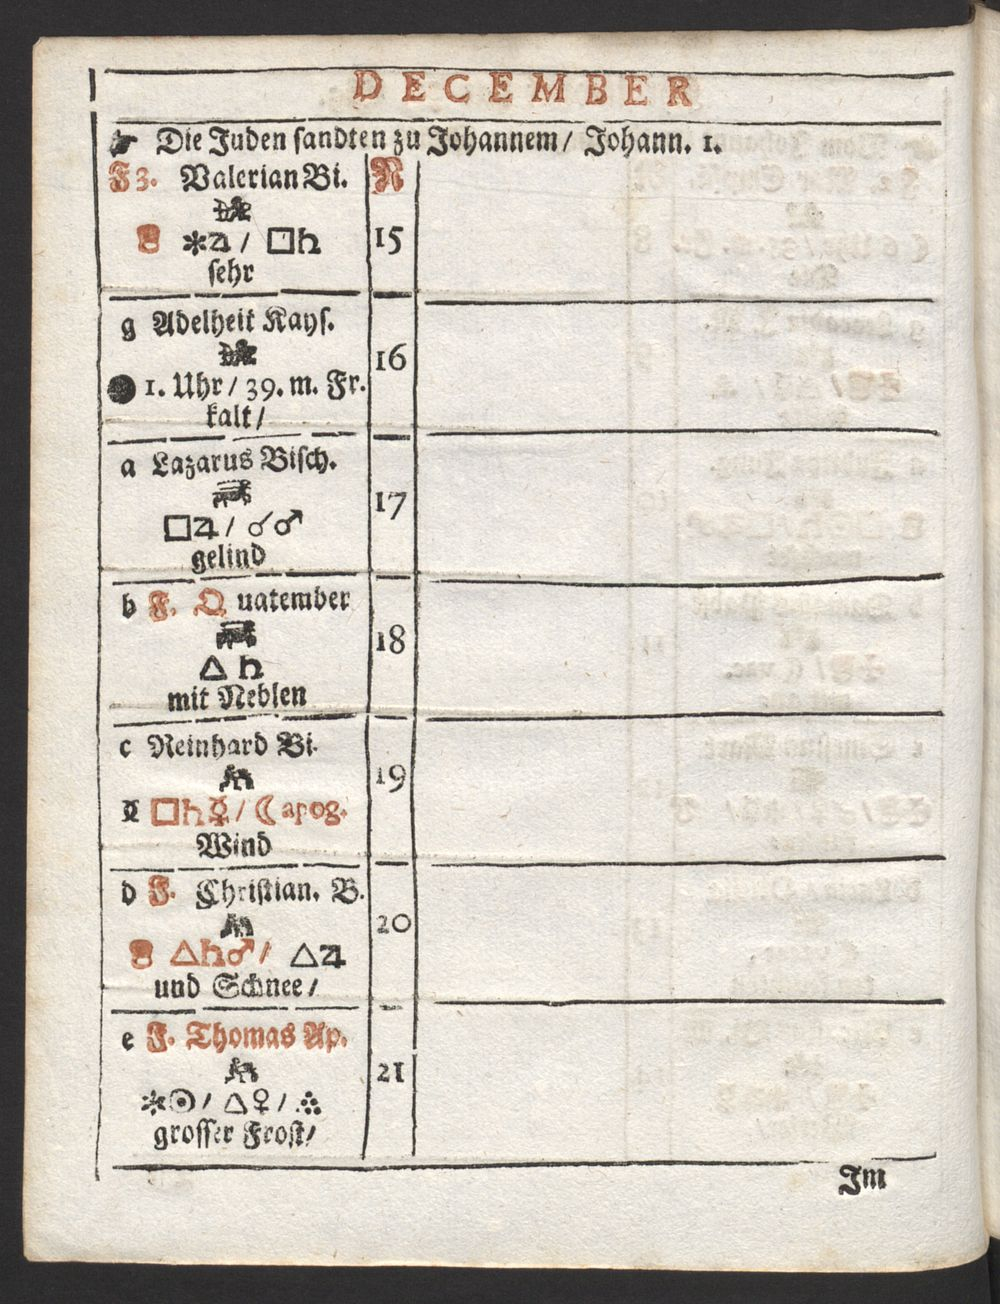 DECEMBER
☞ Die Juden sandten zu Johannem/ Johann. 1.
F 3. Valerian Bi. N
✶♃ / □♄ 15
sehr
g Adelheit Kays.
16
● 1. Uhr / 39. m. Fr.
kalt /
a Lazarus Bisch.
□♃ / ☌♂ 17
gelind
b F. Quatember
18
△ ♄
mit Neblen
c Reinhard Bi.
19
□♄☿ / ☾ apog.
Wind
d F. Christian. B.
20
△♄♂ / △♃
und Schnee /
e F. Thomas Ap.
21
✶☉ / △♀ /
grosser Frost/
Im